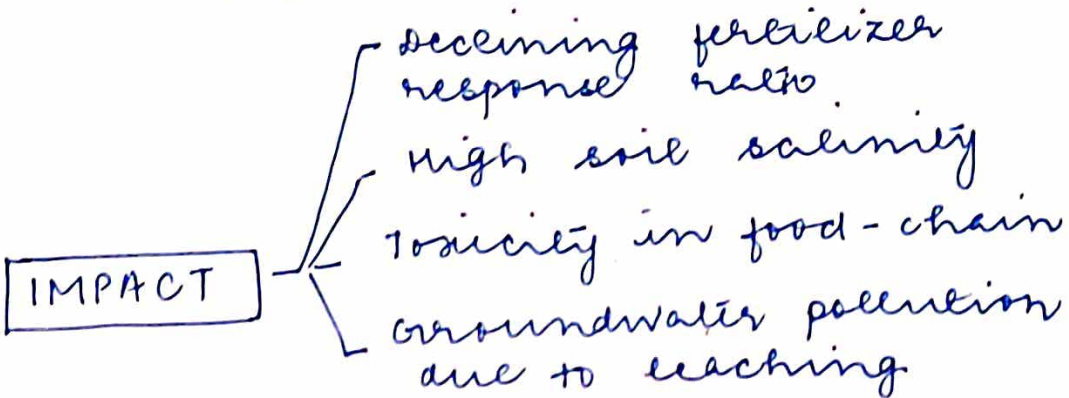 Declining fertilizer
response ratio
High soil salinity
Toxicity in food-chain
IMPACT
Groundwater pollution
due to leaching